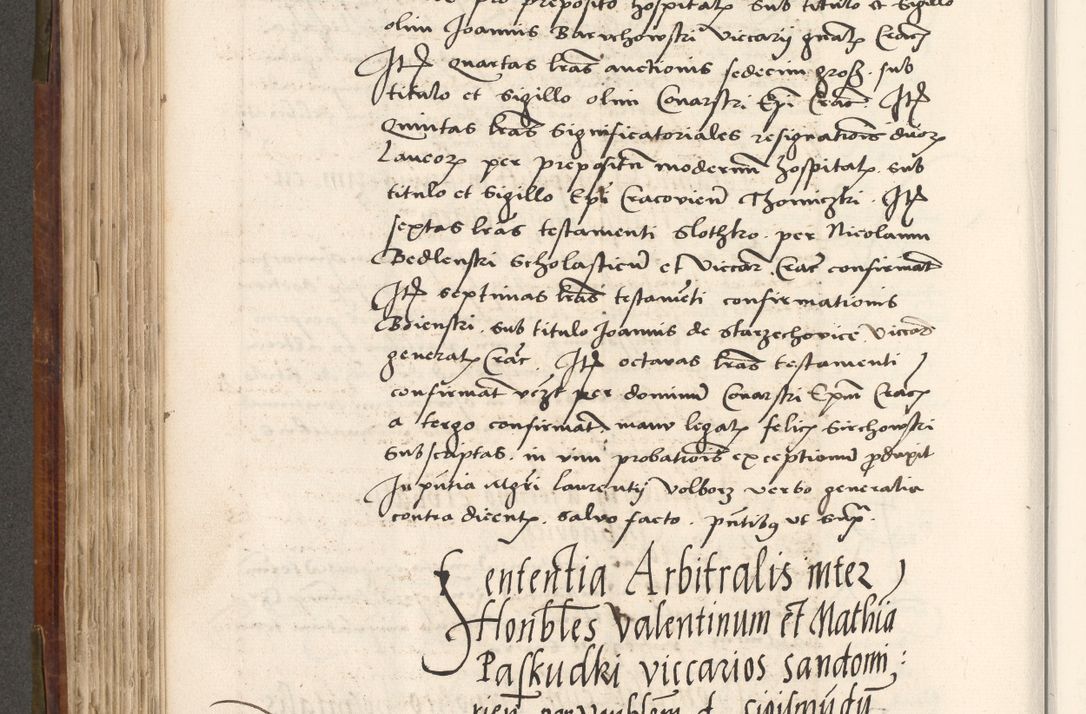 pro preposito hospitalȝ sub titulo et sigillo
olim Joannis Barvchowski viccarij gnalȝ Cracȝ
Itȩ Quartas lr̃as auctionis sedecim grosȝ . sub
titulo et sigillo olim Conarski Ep̃i Crac̃ . Itȩ
Quintas lr̃as significatoriales resignationis duorȝ
Laneorȝ per prepositũ modernũ hospitalȝ . sub
titulo et sigillo Ep̃i Cracovien̄ Thomiczki . Itȩ
sextas lr̃as testamenti Slothko . per Nicolaum
Bedlenski Scholasticũ et viccar . Crac̃ confirmat̃
Itȩ septimas lr̃as testamẽti confirmationis
Bienski . sub titulo Joannis de Starzechovice viccar
generalȝ Crac̃ . Itȩ octavas lr̃as testamenti
confirmat̃ per dominũ Conarski Ep̃m Cracȝ
a tergo confirmat̃ manu legatȝ felicȝ Sirchowski
subscriptas . in vim probationis exceptionũ produxit
In pñtia Mgr̃i laurentij volborz verbo generalia
contra dicentȝ . salvo facto . pñtibȝ vt sup̃ .
Sententia Arbitralis inter
Honbl̃es valentinum et Mathia
Paskudki viccarios sandomi :
rien̄ per Venblem d sigismũdũ